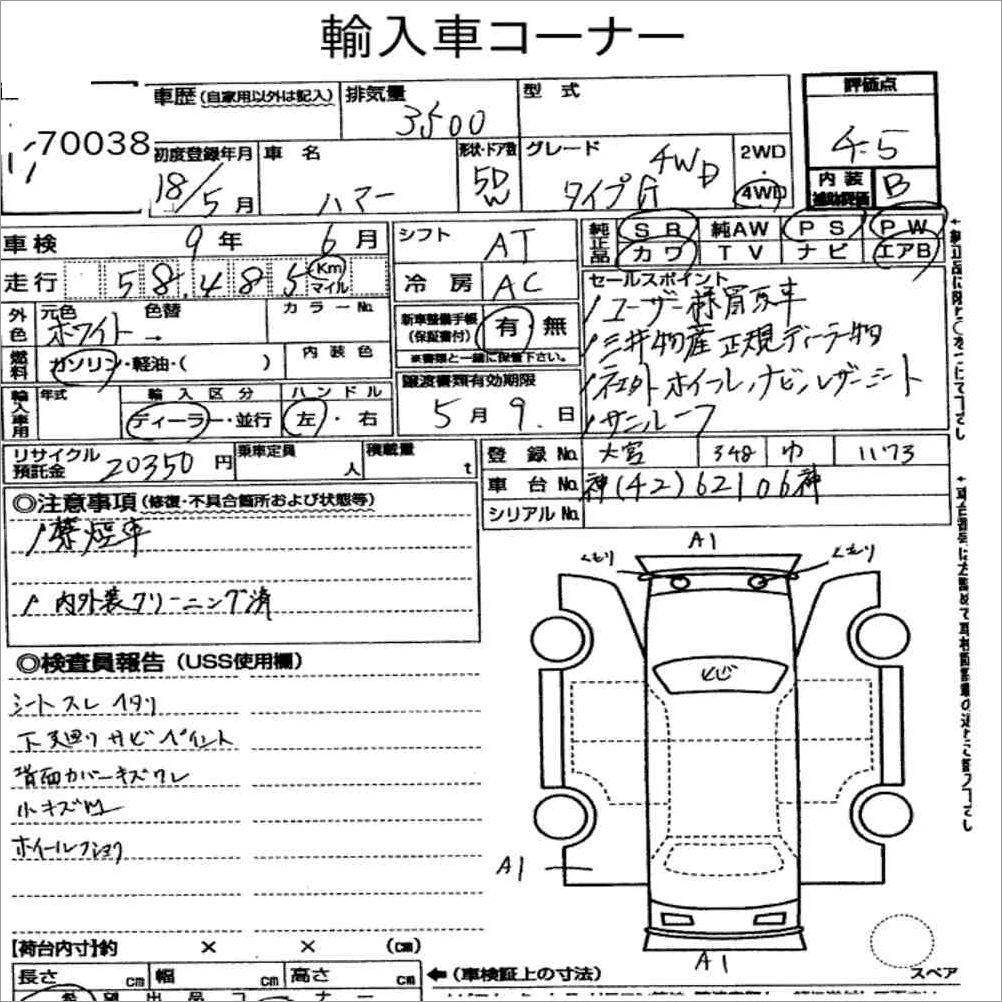 輸入車コーナー
70038
車歴(自家用以外は記入)
排気量
3500
型式
評価点
4.5
初度登録年月
18/5月
車名
ハマー
形状・ドア数
5D
W
グレード
タイプG 4WD
2WD
・
4WD
内装
補助評価
B
車検 9年 6月
シフト
AT
純正品
SR 純AW PS PW
カワ TV ナビ エアB
走行 58,485 Km
マイル
冷房
AC
セールスポイント
ユーザー様買取車
三井物産正規ディーラー物
社外ホイール、ナビ、レザーシート
サンルーフ
外色
元色
ホワイト →
色替
カラーNo.
新車整備手帳
(保証書付)
有・無
※書類と一緒に保管下さい。
燃料
ガソリン・軽油・( )
内装色
譲渡書類有効期限
5月 9日
輸入車用
年式
輸入区分
ディーラー・並行
ハンドル
左・右
リサイクル
預託金
20350円
乗車定員
人
積載量
t
登録No. 大宮 348 ゆ 1173
車台No. 神(42)62106神
シリアルNo.
◎注意事項(修復・不具合箇所および状態等)
禁煙車
内外装クリーニング済
◎検査員報告(USS使用欄)
シートスレ ヘタリ
下廻りサビ ペイント
背面カバーキズワレ
小キズ凹
ホイールフショク
A1
くもり
くもり
とび
A1
A1
スペア
【荷台内寸】約 × × (cm)
長さ cm 幅 cm 高さ cm
←(車検証上の寸法)